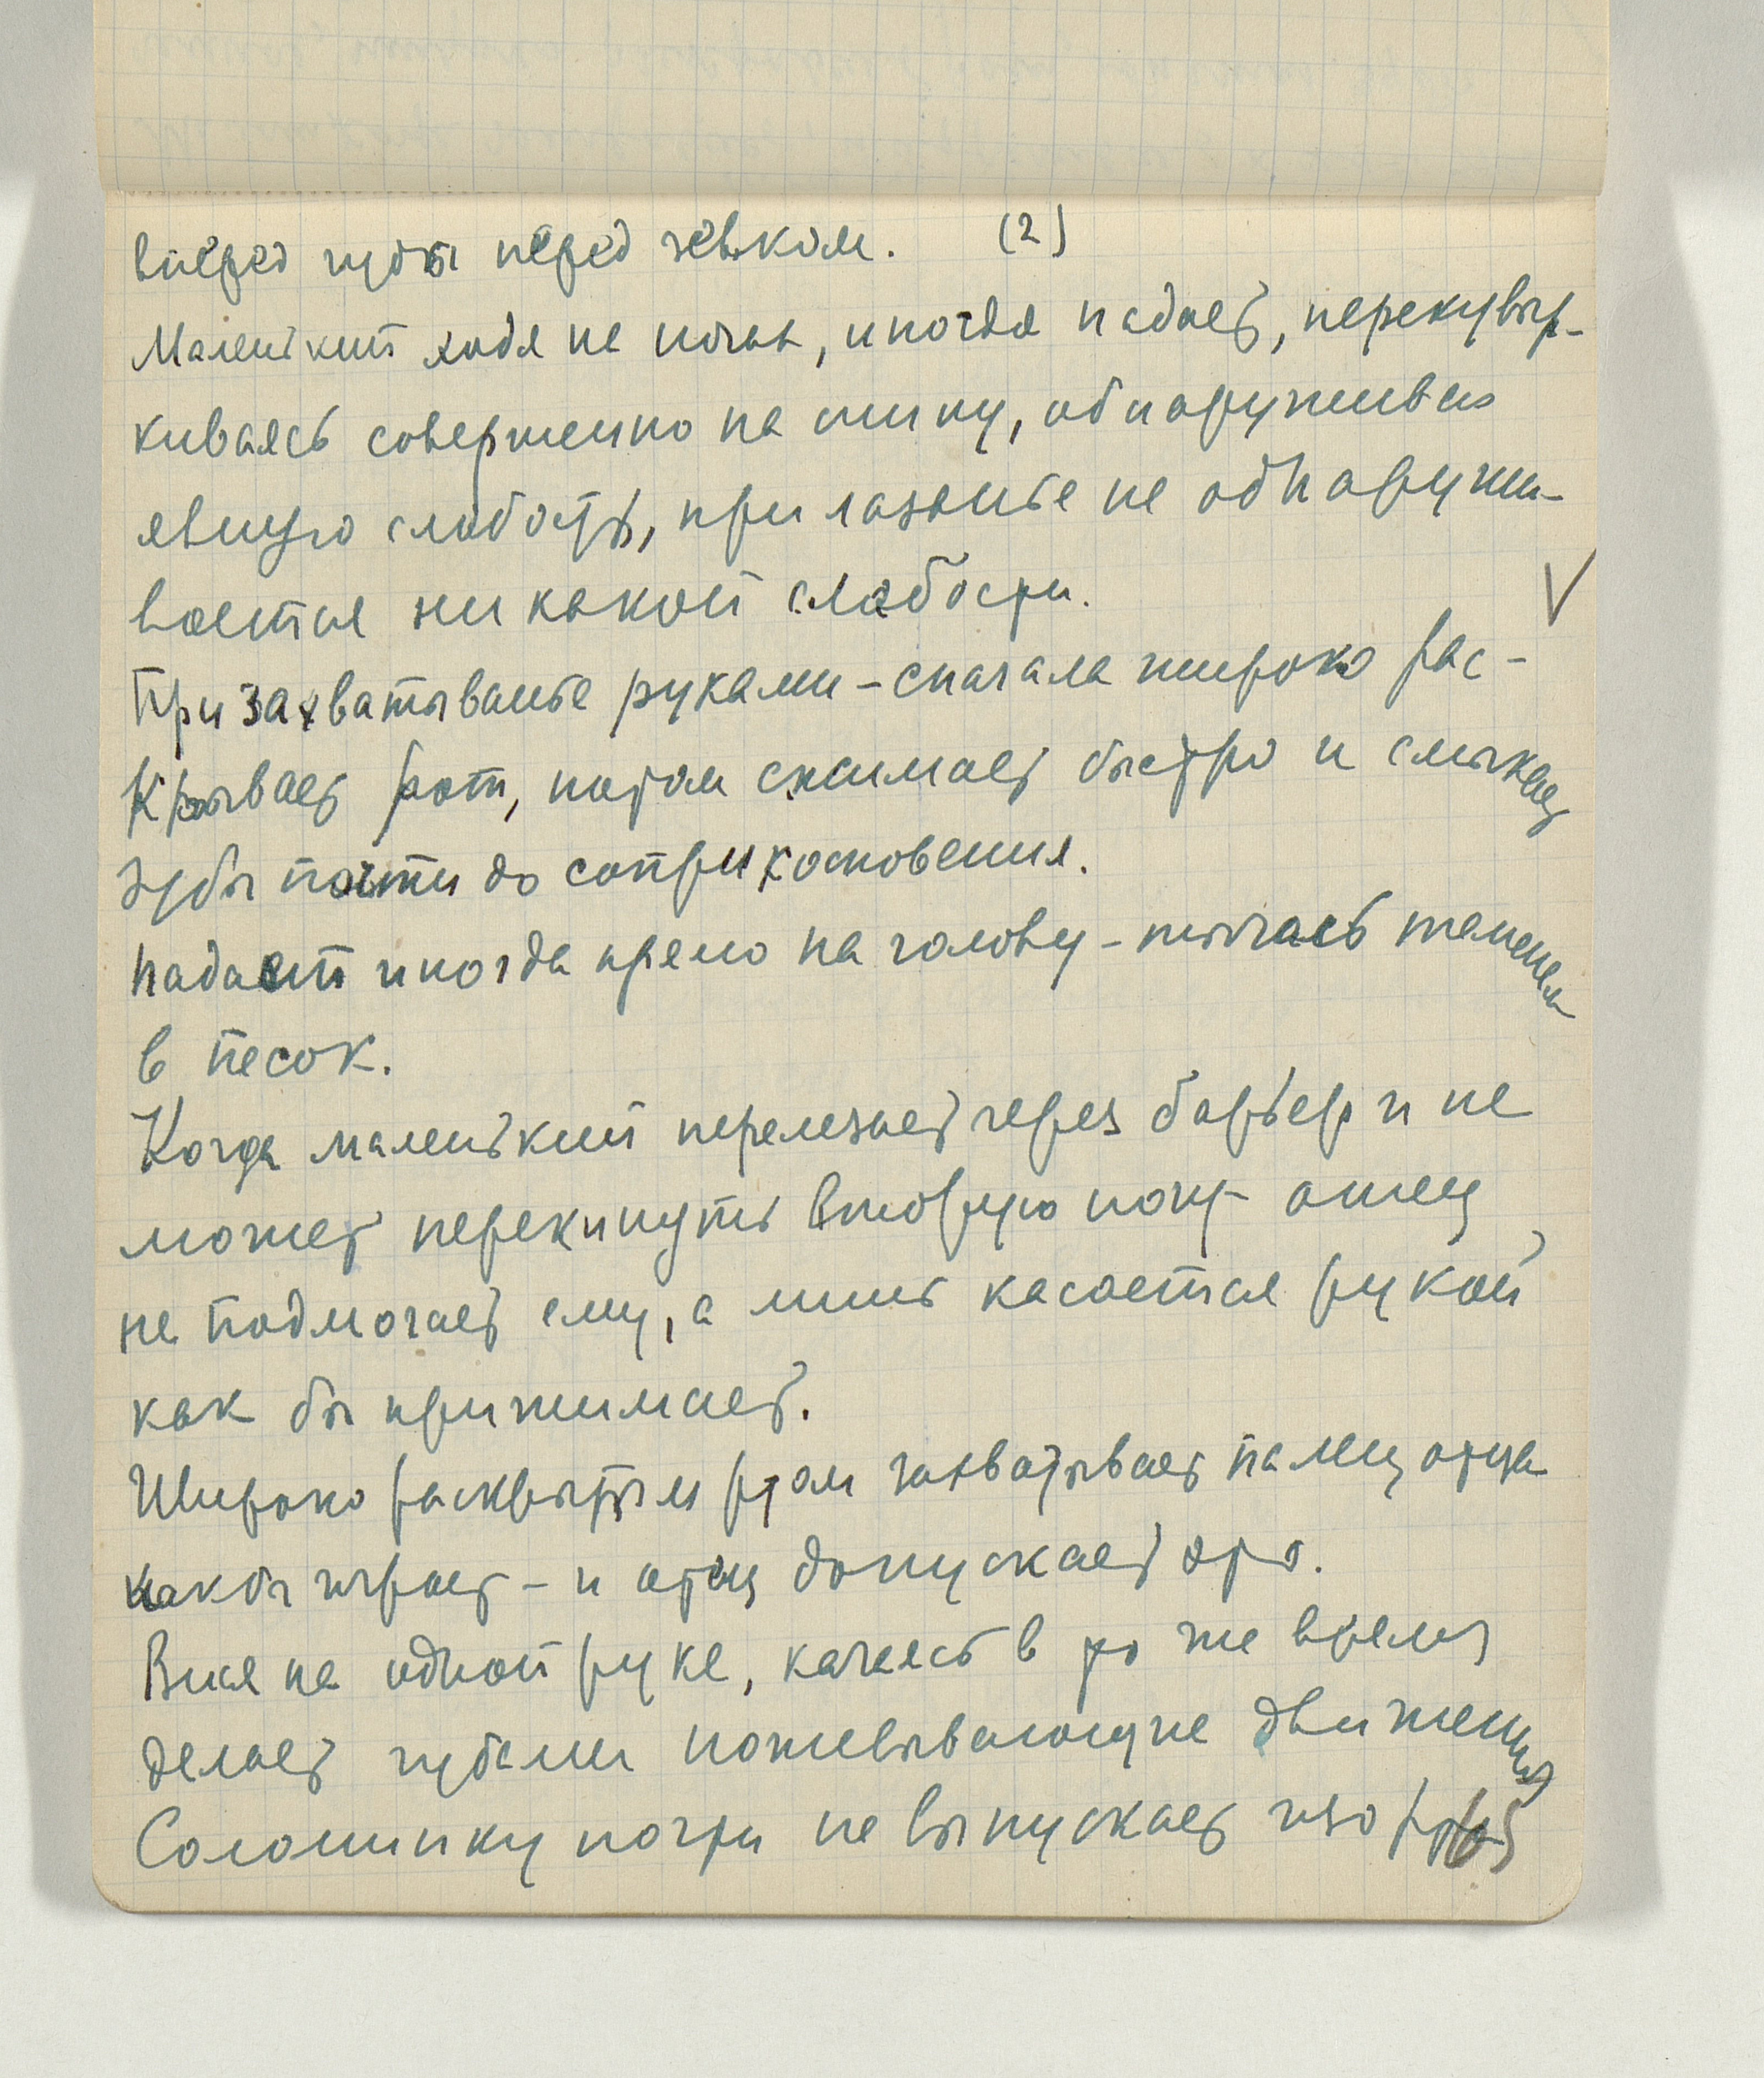 вперед губы перед зевком. (2)
Маленький ходя на ногах, иногда падает, перекувыр-
киваясь совершенно на спину, обнаруживая
явную слабость, при лазанье не обнаружи-
вается никакой слабости.
При захватыванье руками – сначала широко рас-
крывает рот, потом сжимает быстро и смыкает
зубы почти до соприкосновения.
падает иногда прямо на голову – тычась теменем
в песок.
Когда маленький перелезает через барьер и не
может перекинуть вторую ногу – отец
не подмогает ему, а лишь касается рукой
как бы прижимает.
Широко раскрытым ртом захватывает палец отца
как бы играет – и отец допускает это.
Вися на одной руке, качаясь в то же время
делает губами пожевывающие движения
Соломинку почти не выпускает изо рта